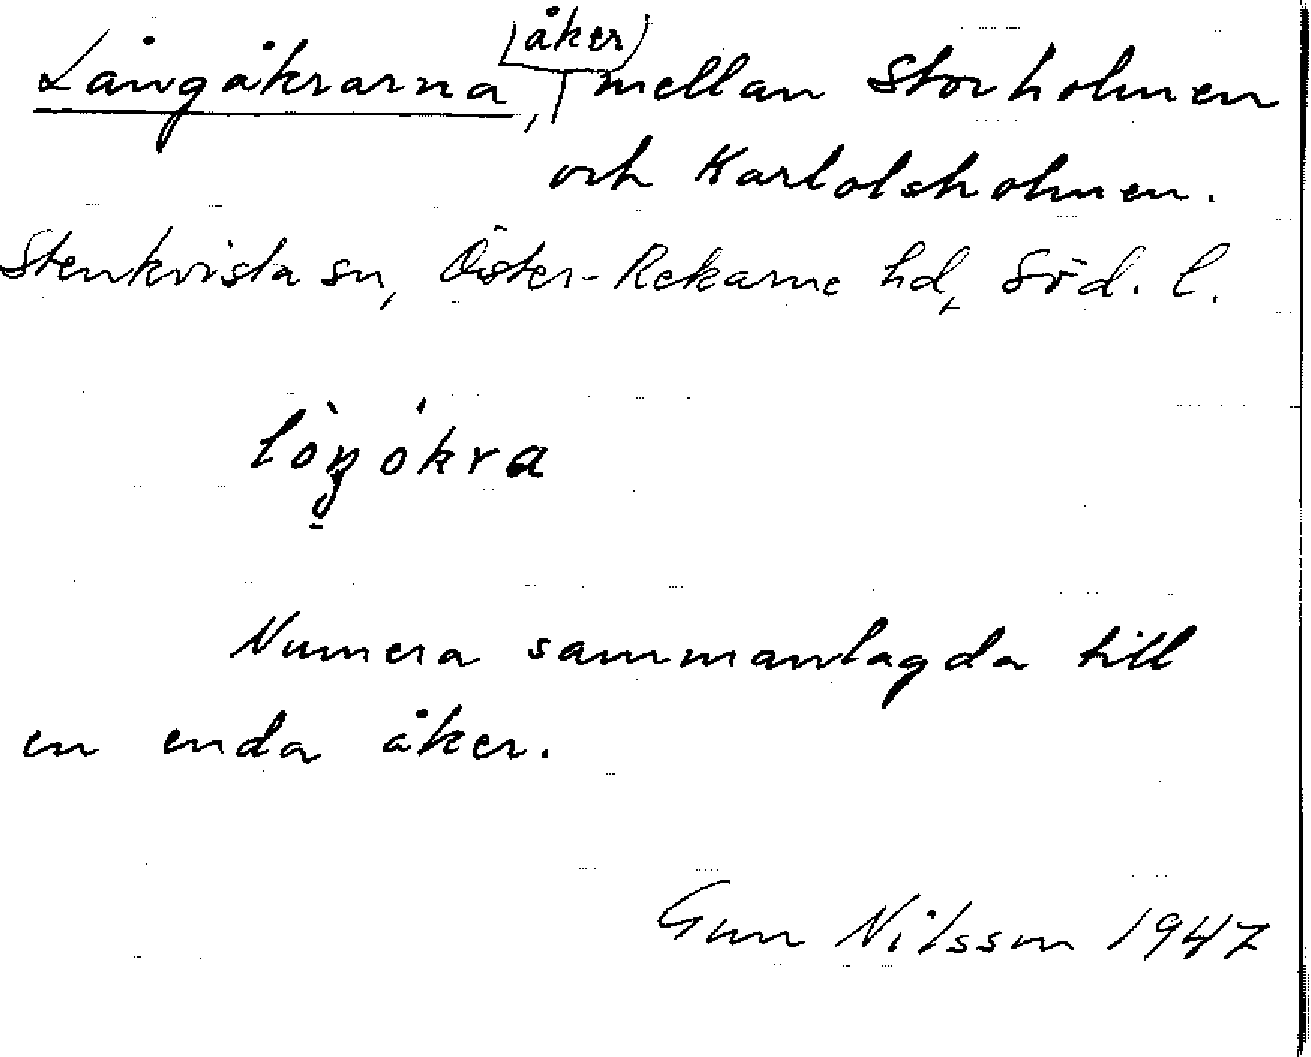 Långåkrarna, (åker) mellan Storholmen
och Karlolsholmen.
Stenkvista sn, Öster-Rekarne hd, Söd. l.
lòŋókra
Numera sammanlagda till
en enda åker.
Gun Nilsson 1947